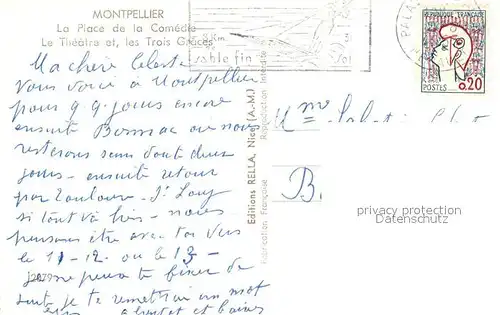 MONTPELLIER
La Place de la Comédie
Le Théâtre et, les Trois Grâces
Ma chère Céleste
Vous voici à Montpellier
pour qq jours encore
ensuite où nous
resterons sans doute deux
jours - ensuite retour
par Toulouse - St Loup
si tout va bien - nous
pensons être avec toi vers
le 11-12 ou le 13-
je ne peux te fixer de
suite je te remettrai un mot
à bientôt et baisers
Editions RELLA, Nice (A.-M.)
Fabrication Française
Reproduction Interdite
sable fin
PALA
REPUBLIQUE FRANÇAISE
POSTES 0.20
Mme
B.
privacy protection
Datenschutz